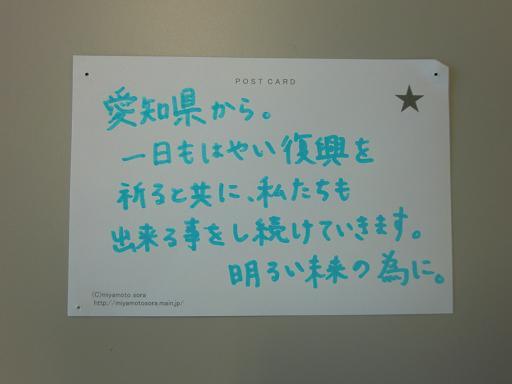 POST CARD
愛知県から。
一日もはやい復興を
祈ると共に、私たちも
出来る事をし続けていきます。
明るい未来の為に。
(C)miyamoto sora
http://miyamotosora.main.jp/